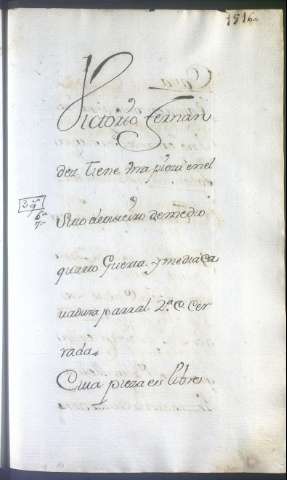 151
Victorio Fernan
dez tiene una pieza en el
Sitio de medio
quarto Guerta y media Ca
vadura parral 2.ª C. Cer
rada.
Cuia pieza es libre